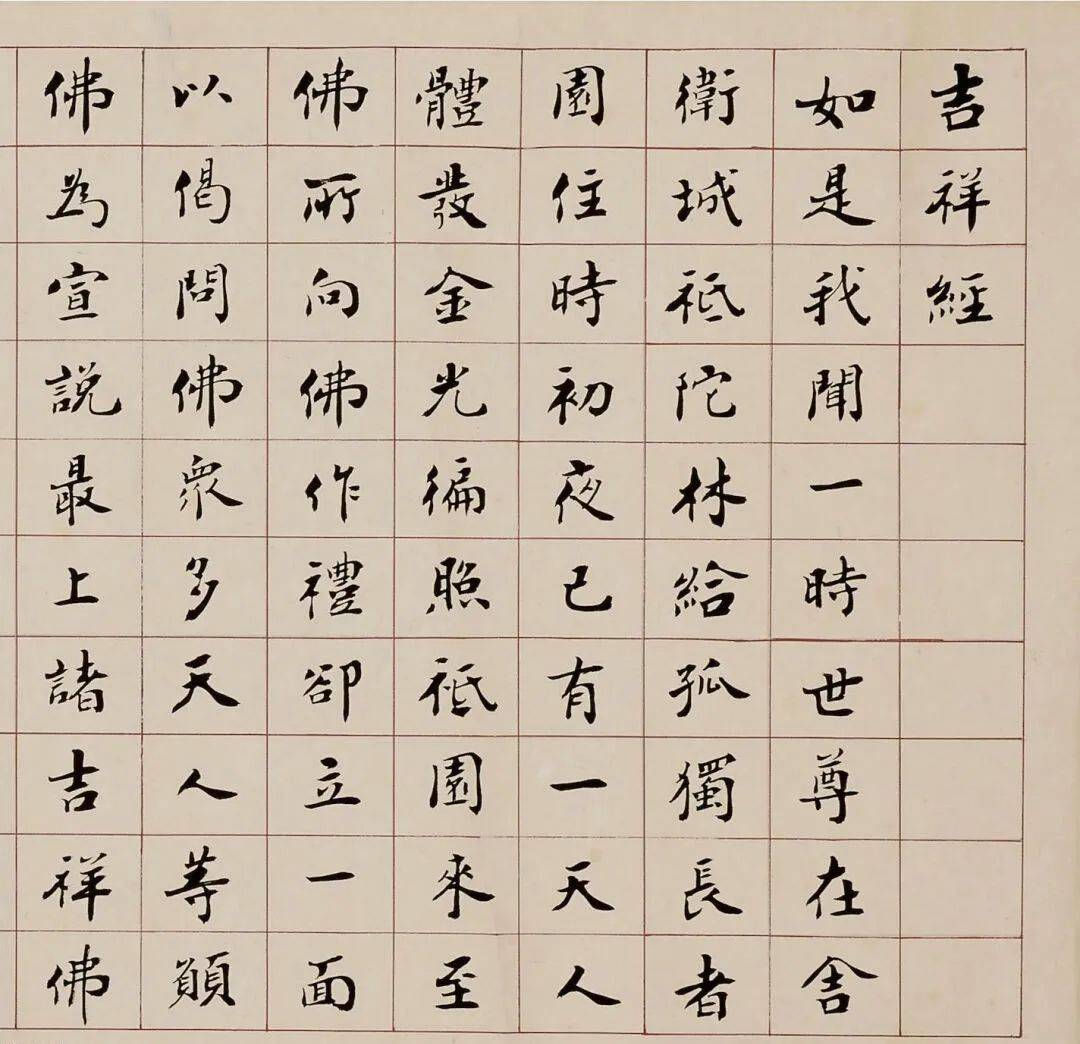 吉祥經
如是我聞一時世尊在舍
衛城祇陀林給孤獨長者
園住時初夜已有一天人
體發金光徧照祇園來至
佛所向佛作禮卻立一面
以偈問佛眾多天人等願
佛為宣説最上諸吉祥佛